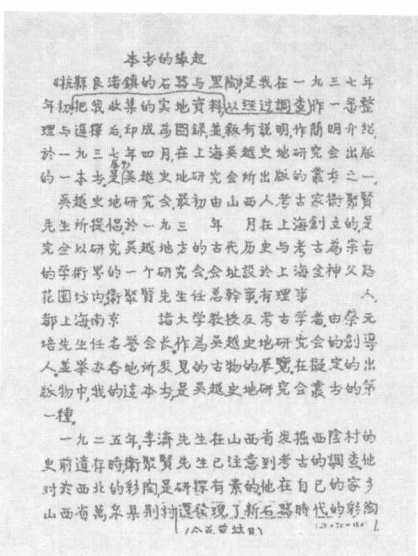 本书的缘起
《杭縣良渚鎮的石器与黑陶》是我在一九三七年
年初,把我收集的实地資料,以经过調查,作一番整
理与選擇后,印成爲图録,並叙有説明,作簡明介绍,
於一九三七年四月,在上海吳越史地研究会出版
的一本书,是吳越史地研究会所出版的叢书之一.
吳越史地研究会,最初由山西人考古家衛聚賢
先生所提倡,於一九三 年 月在上海創立的,是
完全以研究吳越地方的古代历史与考古為宗旨
的学術界的一个研究会,会址設於上海金神父路
花園坊内,衛聚賢先生任总幹事,有理事 人,
都上海南京 諸大学教授及考古学者,由蔡元
培先生任名誉会长,作為吳越史地研究会的創導
人,並举办各地所发見的古物的展覽,在擬定的出
版物中,我的這本书,是吳越史地研究会叢书的第
一種.
一九二五年,李濟先生在山西省发掘西陰村的
史前遺存時,衛聚賢先生已注意到考古的調查,他
对於西北的彩陶是研探有素的,他在自己的家乡
山西省萬泉县荆村還發現了新石器時代的彩陶